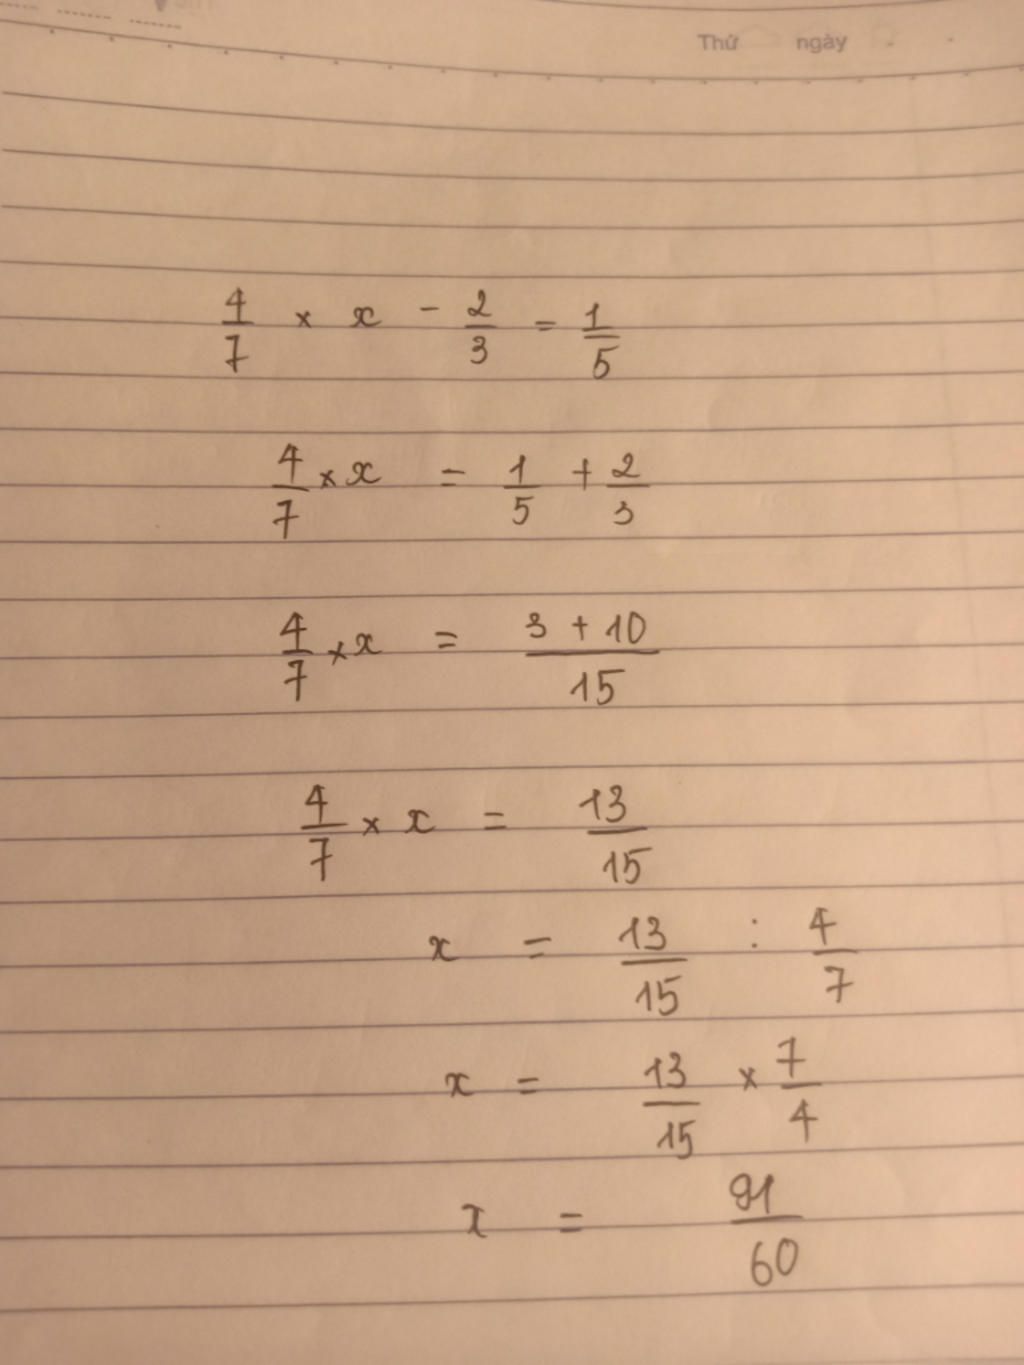 Thứ ngày
4/7 × x - 2/3 = 1/5
4/7 × x = 1/5 + 2/3
4/7 × x = (3 + 10)/15
4/7 × x = 13/15
x = 13/15 : 4/7
x = 13/15 × 7/4
x = 91/60